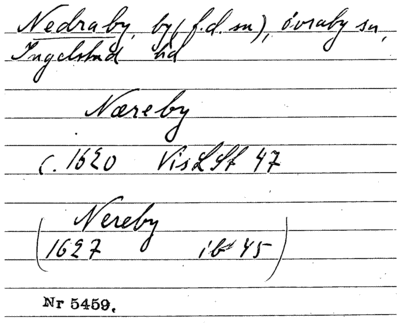 Nedraby, by (f.d. sn), övraby sn,
Ingelstad hd
Næreby
c. 1620 VisLSt 47
(Nereby
1627 ibt 45)
Nr 5459.